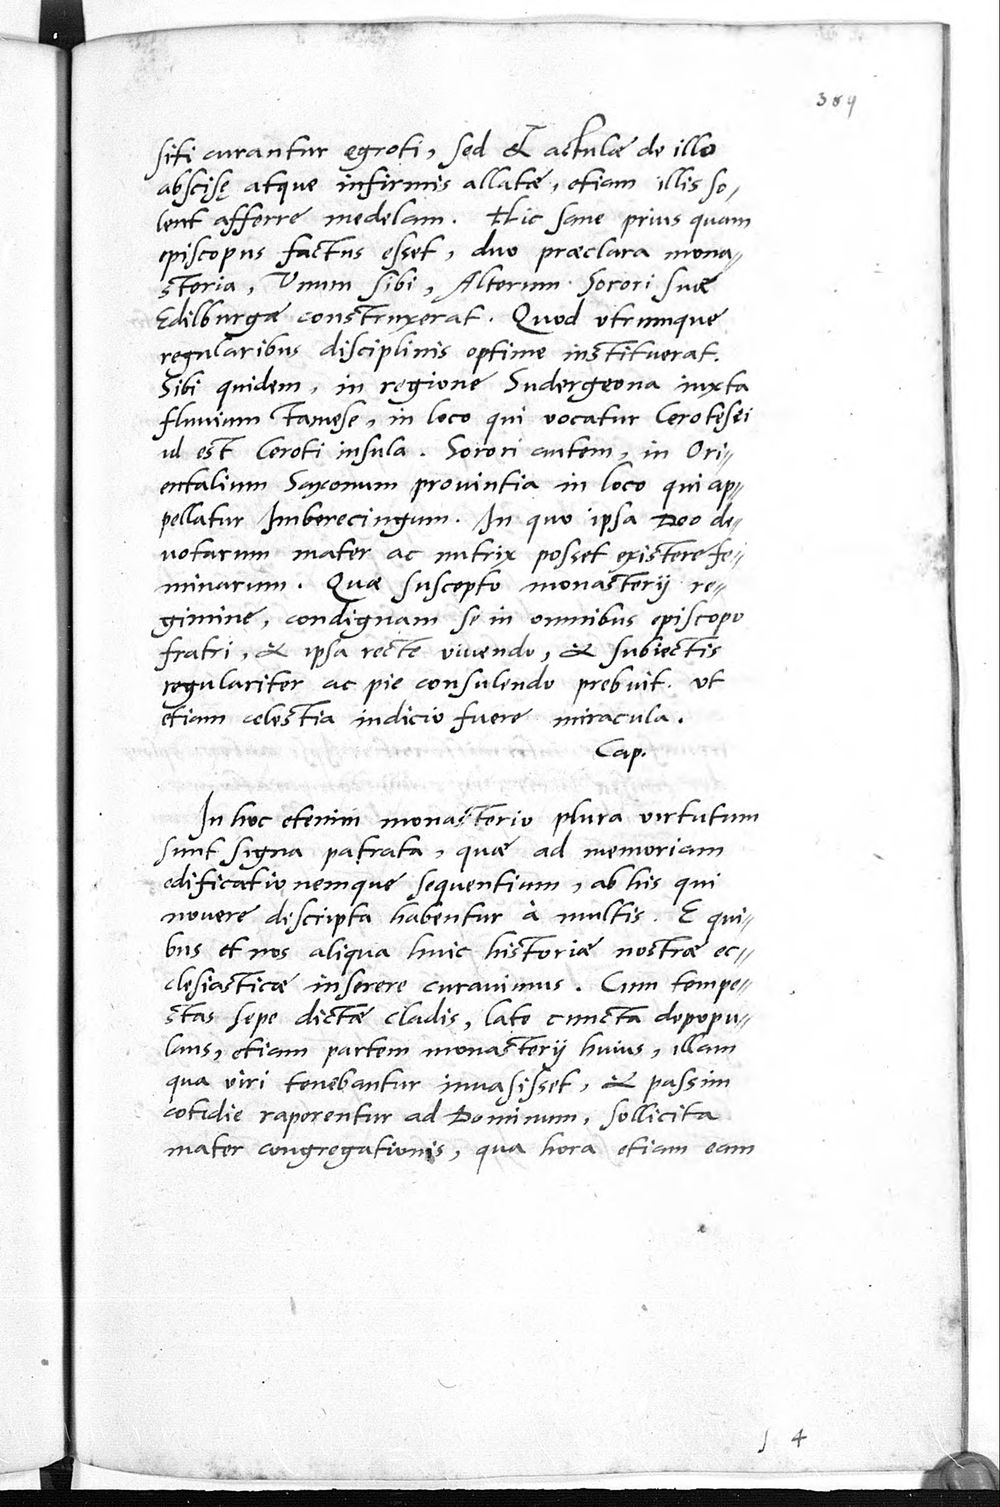 389
siti curantur egroti, sed & actulæ de illo
abscisę atque infirmis allatæ, etiam illis so,
lent afferre medelam. Hic sane prius quam
episcopus factus esset, duo præclara mona,,
steria, Vnum sibi, Alterum Sorori suæ
Edilburgæ construxerat. Quod vtrumque
regularibus disciplinis optime instituerat.
Sibi quidem, in regione Sudergeona iuxta
fluuium Tamese, in loco qui vocatur Cerotesei
id est Ceroti insula. Sorori autem, in Ori,,
entalium Saxonum prouintia in loco qui ap,,
pellatur Imberecingum. In quo ipsa Deo de,,
uotarum mater ac nutrix posset existere fe,,
minarum. Quæ suscepto monasterij re,,
gimine, condignam se in omnibus episcopo
fratri, & ipsa recte viuendo, & subiectis
regulariter ac pie consulendo prebuit. vt
etiam celestia indicio fuere miracula.
Cap.
In hoc etenim monasterio plura virtutum
sunt signa patrata, quæ ad memoriam
edificationemque sequentium, ab his qui
nouere discripta habentur à multis. E qui,,
bus et nos aliqua huic historiæ nostræ ec,,
clesiasticæ inserere curauimus. Cum tempe,,
stas sepe dictæ cladis, late cuncta depopu,,
lans, etiam partem monasterij huius, illam
qua viri tenebantur inuasisset, & passim
cotidie raperentur ad Dominum, sollicita
mater congregationis, qua hora etiam eam
ſ 4